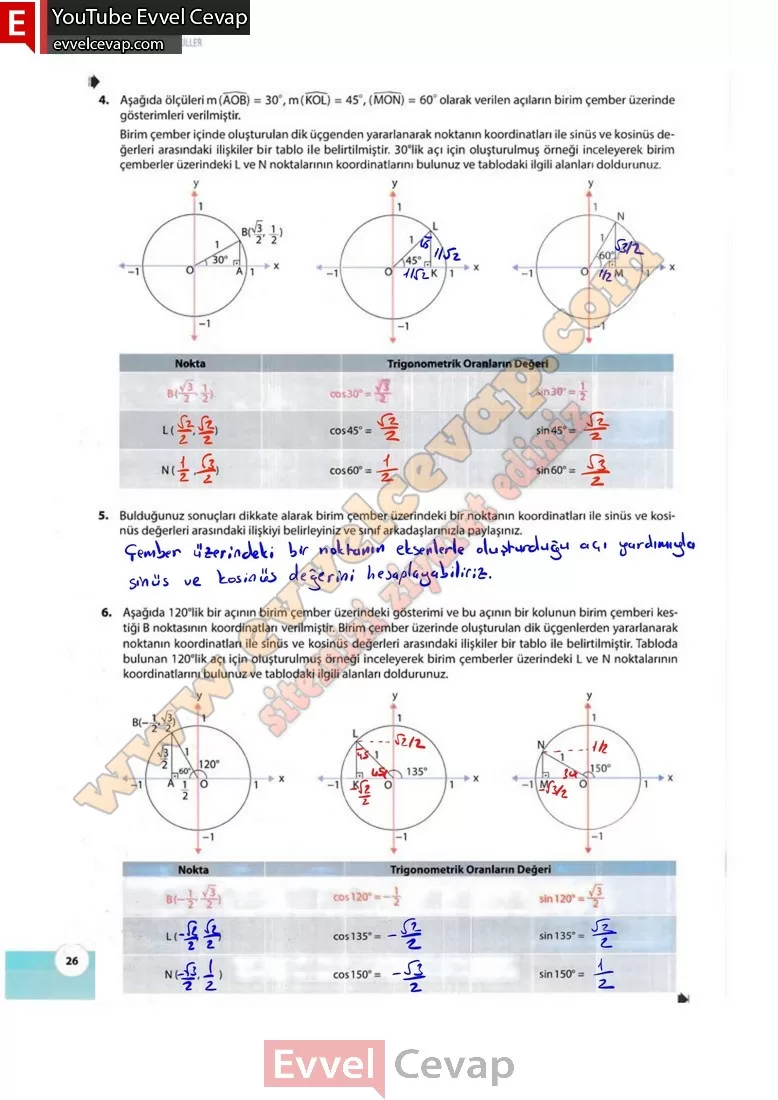 E YouTube Evvel Cevap
evvelcevap.com
4. Aşağıda ölçüleri m(AOB) = 30°, m(KOL) = 45°, (MON) = 60° olarak verilen açıların birim çember üzerinde
gösterimleri verilmiştir.
Birim çember içinde oluşturulan dik üçgenden yararlanarak noktanın koordinatları ile sinüs ve kosinüs de-
ğerleri arasındaki ilişkiler bir tablo ile belirtilmiştir. 30°lik açı için oluşturulmuş örneği inceleyerek birim
çemberler üzerindeki L ve N noktalarının koordinatlarını bulunuz ve tablodaki ilgili alanları doldurunuz.
y y y
1 1 1
B(√3/2, 1/2) L N
1 30° 1 45 1/√2 1 60° √3/2
-1 O A 1 x -1 O 45° 1/√2 K 1 x -1 O 1/2 M 1 x
-1 -1 -1
Nokta Trigonometrik Oranların Değeri
B(√3/2, 1/2) cos30° = √3/2 sin30° = 1/2
L(√2/2, √2/2) cos45° = √2/2 sin45° = √2/2
N(1/2, √3/2) cos60° = 1/2 sin60° = √3/2
5. Bulduğunuz sonuçları dikkate alarak birim çember üzerindeki bir noktanın koordinatları ile sinüs ve kosi-
nüs değerleri arasındaki ilişkiyi belirleyiniz ve sınıf arkadaşlarınızla paylaşınız.
Çember üzerindeki bir noktanın eksenlerle oluşturduğu açı yardımıyla
sinüs ve kosinüs değerini hesaplayabiliriz.
6. Aşağıda 120°lik bir açının birim çember üzerindeki gösterimi ve bu açının bir kolunun birim çemberi kes-
tiği B noktasının koordinatları verilmiştir. Birim çember üzerinde oluşturulan dik üçgenlerden yararlanarak
noktanın koordinatları ile sinüs ve kosinüs değerleri arasındaki ilişkiler bir tablo ile belirtilmiştir. Tabloda
bulunan 120°lik açı için oluşturulmuş örneği inceleyerek birim çemberler üzerindeki L ve N noktalarının
koordinatlarını bulunuz ve tablodaki ilgili alanları doldurunuz.
y y y
B(-1/2, √3/2) 1 L √2/2 1 N 1/2 1
√3/2 1 60° 120° 45 1 45 135° 1 30 150°
-1 A 1/2 O 1 x -1 K -√2/2 O 1 x -1 M -√3/2 O 1 x
-1 -1 -1
Nokta Trigonometrik Oranların Değeri
B(-1/2, √3/2) cos120° = -1/2 sin120° = √3/2
L(-√2/2 √2/2) cos135° = -√2/2 sin135° = √2/2
N(-√3/2, 1/2) cos150° = -√3/2 sin150° = 1/2
26
www.evvelcevap.com
sitemizi ziyaret ediniz
Evvel Cevap